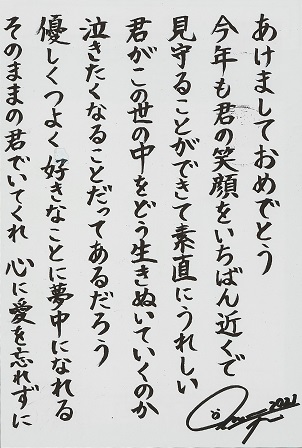 あけましておめでとう
今年も君の笑顔をいちばん近くで
見守ることができて素直にうれしい
君がこの世の中をどう生きぬいていくのか
泣きたくなることだってあるだろう
優しくつよく好きなことに夢中になれる
そのままの君でいてくれ 心に愛を忘れずに
2021